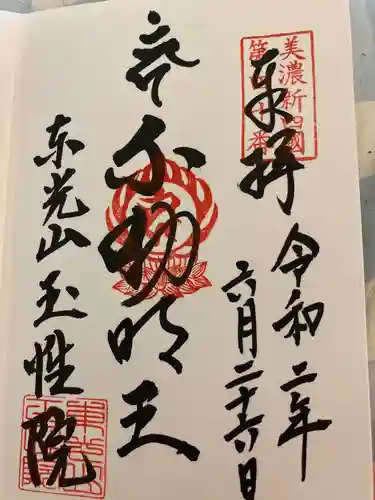 美濃新四國
奉拝
令和二年
六月二十六日
不動明王
东光山玉性院